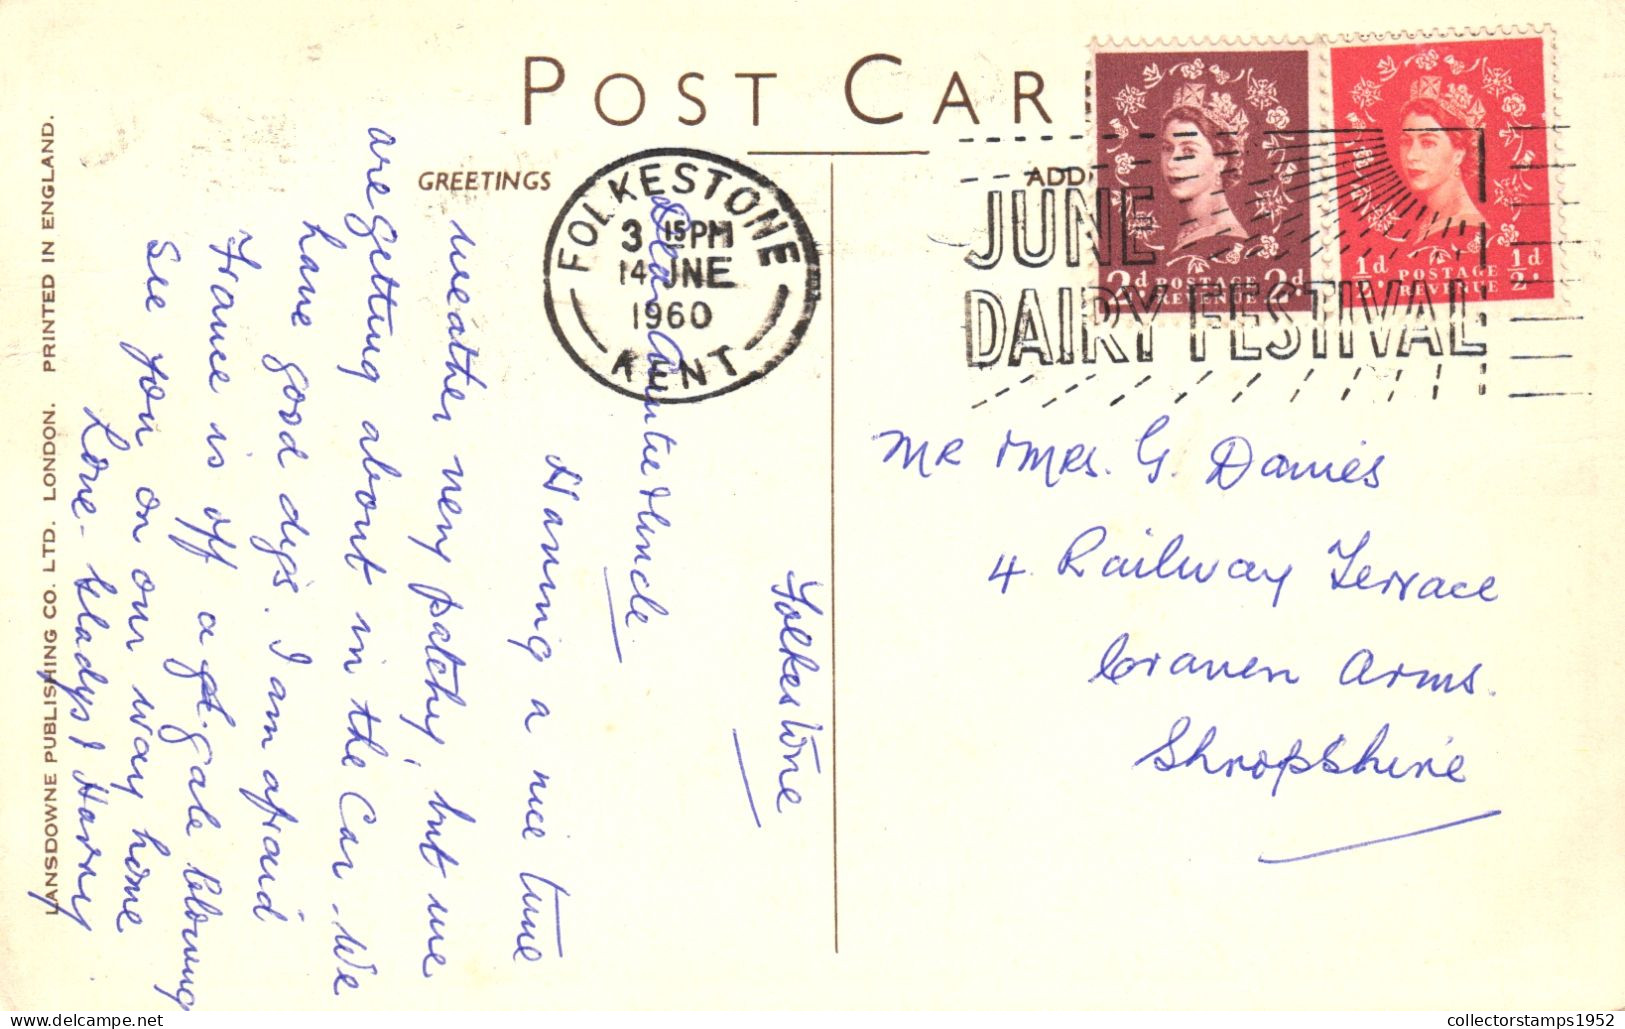 POST CAR
GREETINGS
ADD
FOLKESTONE
3 15PM
14 JNE
1960
KENT
JUNE
DAIRY FESTIVAL
2d POSTAGE 2d
REVENUE
½d POSTAGE ½d
REVENUE
Folkestone
Dear Auntie & Uncle.
Having a nice time
weather very patchy, but we
are getting about in the Car. We
have good digs. I am afraid
France is off a gale blowing
See you on our way home
Love - Gladys & Harry
MR & MRS. G. Davies
4. Railway Terrace
Craven Arms.
Shropshire
LANSDOWNE PUBLISHING CO. LTD. LONDON. PRINTED IN ENGLAND.
collectorstamps1952